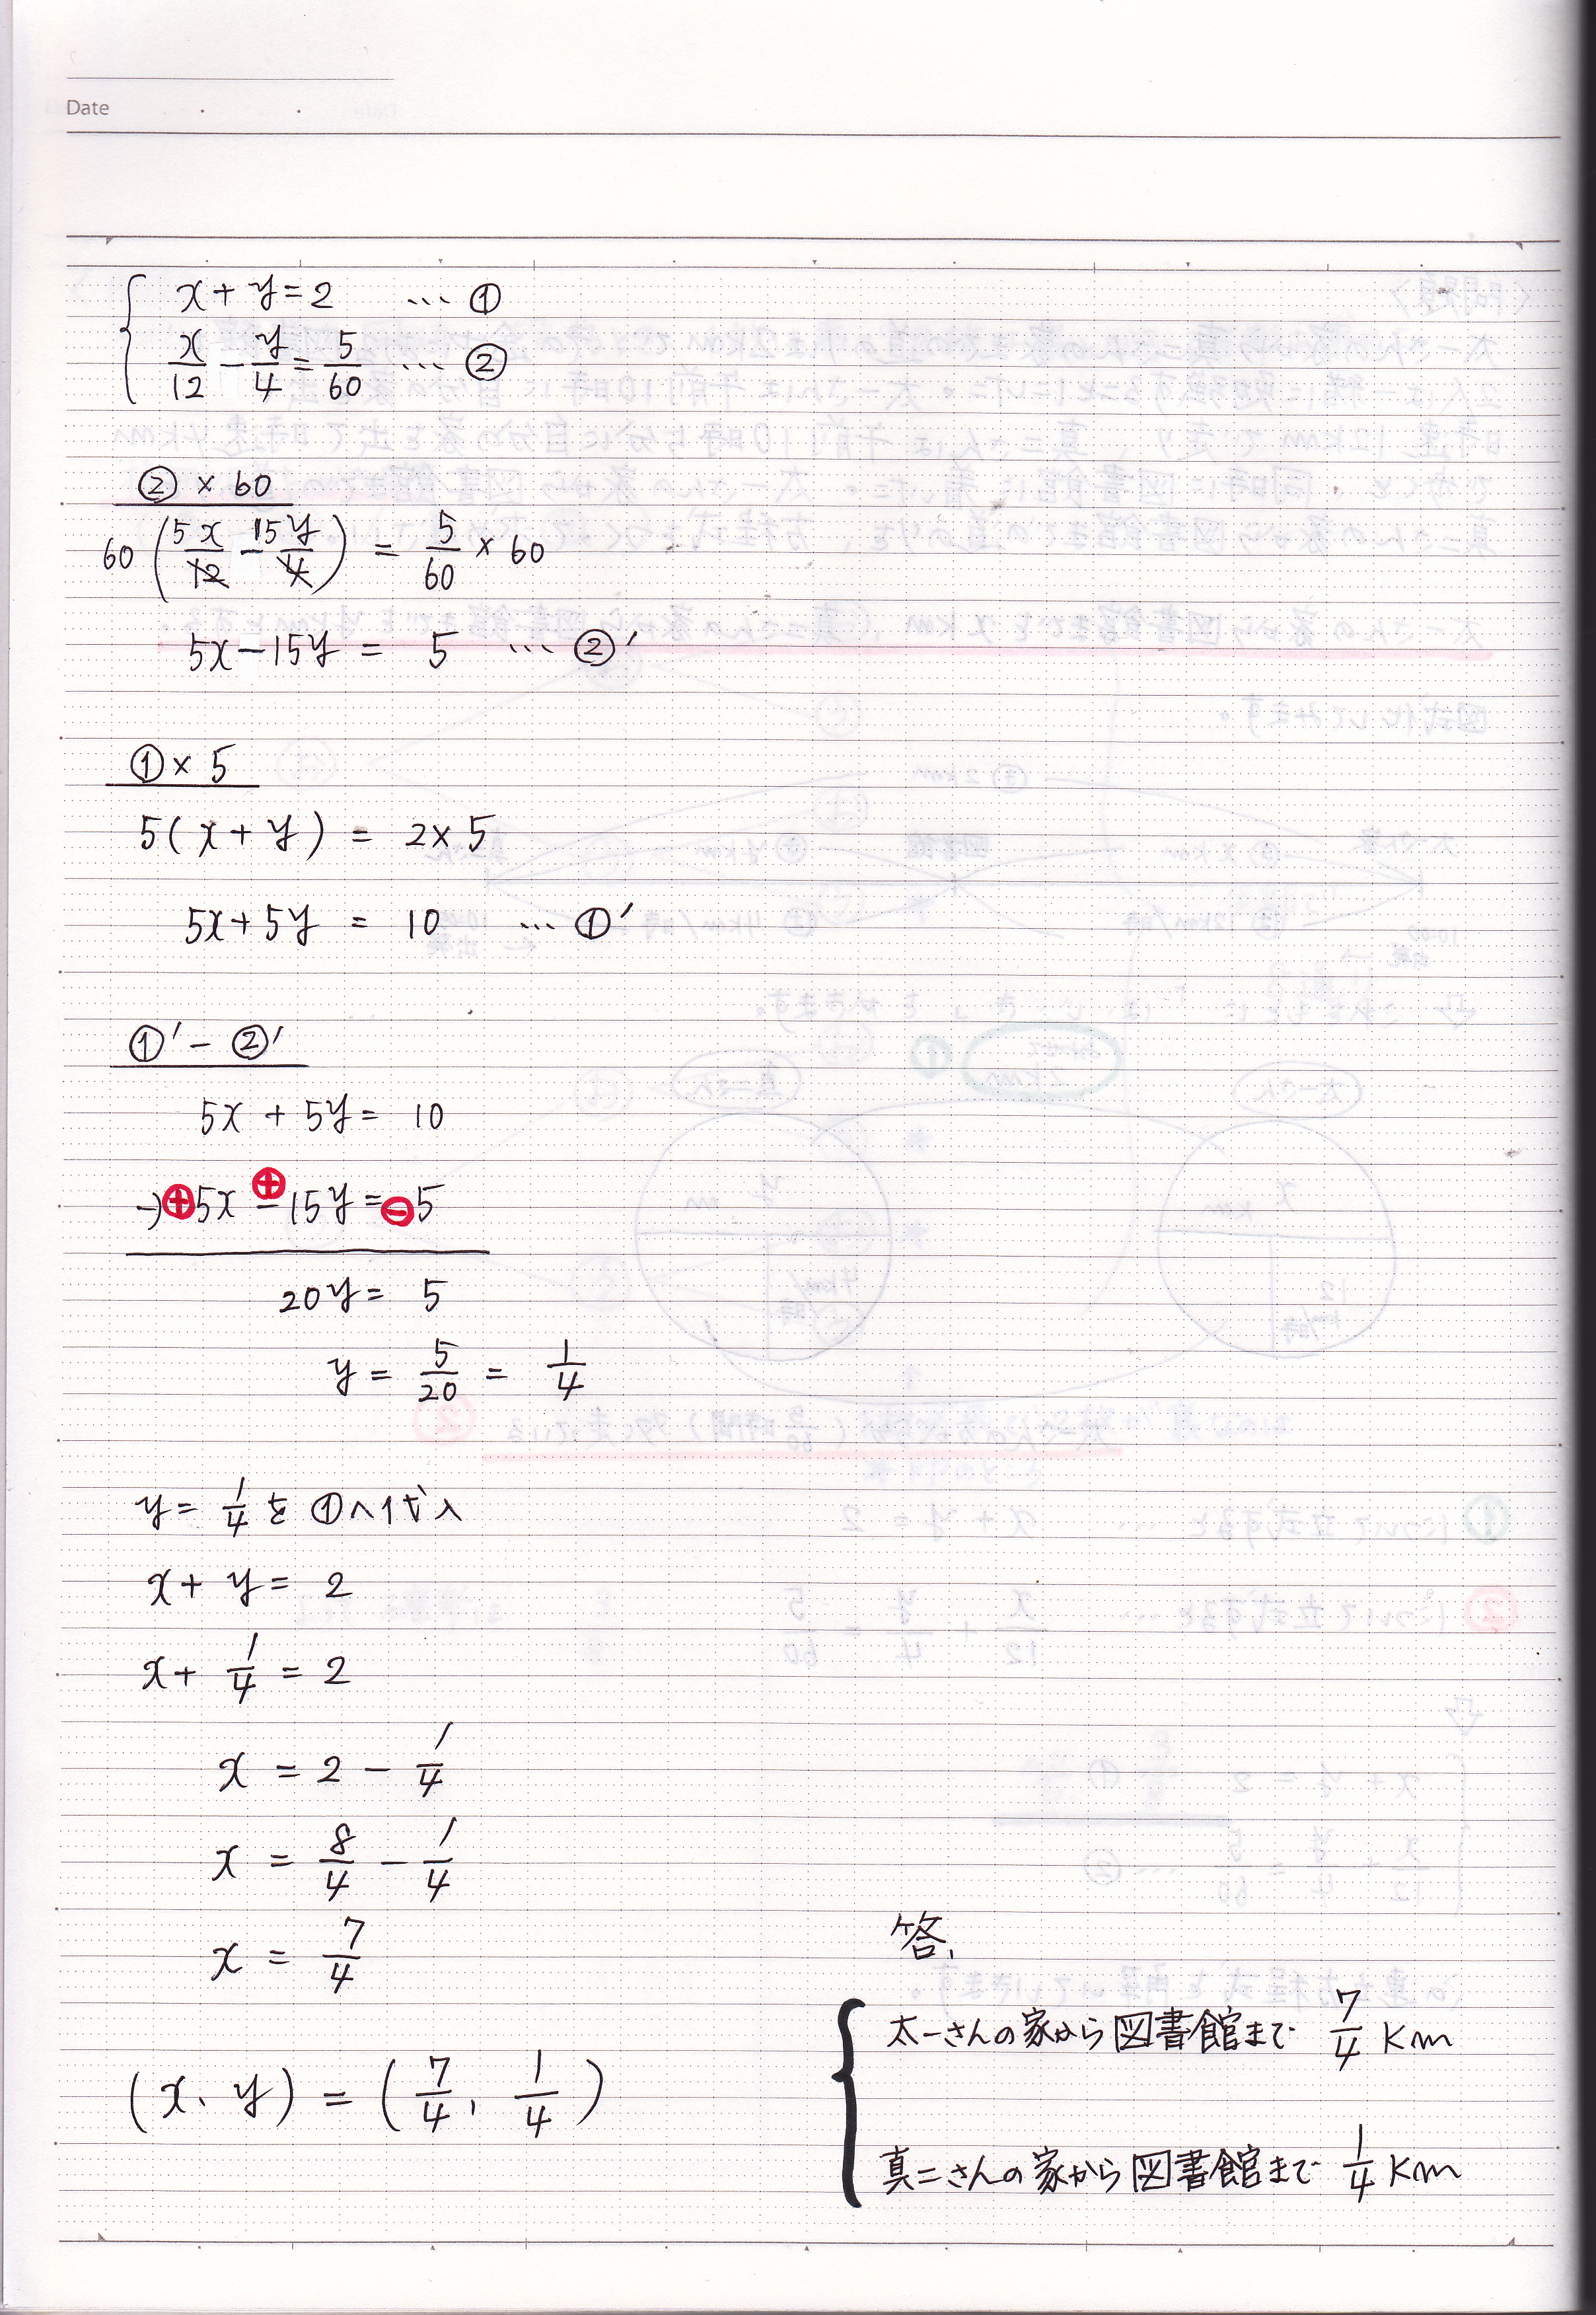 Date
x + y = 2 … ①
x/12 − y/4 = 5/60 … ②
② × 60
60 (5x/12 − 15y/4) = 5/60 × 60
5x − 15y = 5 … ②′
① × 5
5(x + y) = 2 × 5
5x + 5y = 10 … ①′
①′ − ②′
5x + 5y = 10
−) ⊕5x ⊕− 15y = ⊖5
20y = 5
y = 5/20 = 1/4
y = 1/4 を ①へ代入
x + y = 2
x + 1/4 = 2
x = 2 − 1/4
x = 8/4 − 1/4
x = 7/4
(x、y) = (7/4, 1/4)
答、
太一さんの家から図書館まで 7/4 km
真二さんの家から図書館まで 1/4 km